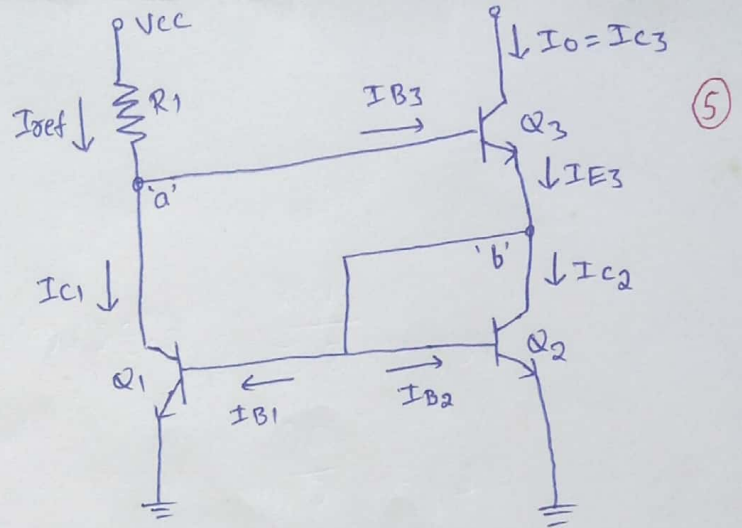 VCC
Io = Ic3
Iref
R1
IB3
Q3
5
'a'
IE3
'b'
Ic1
Ic2
Q1
Q2
IB1
IB2